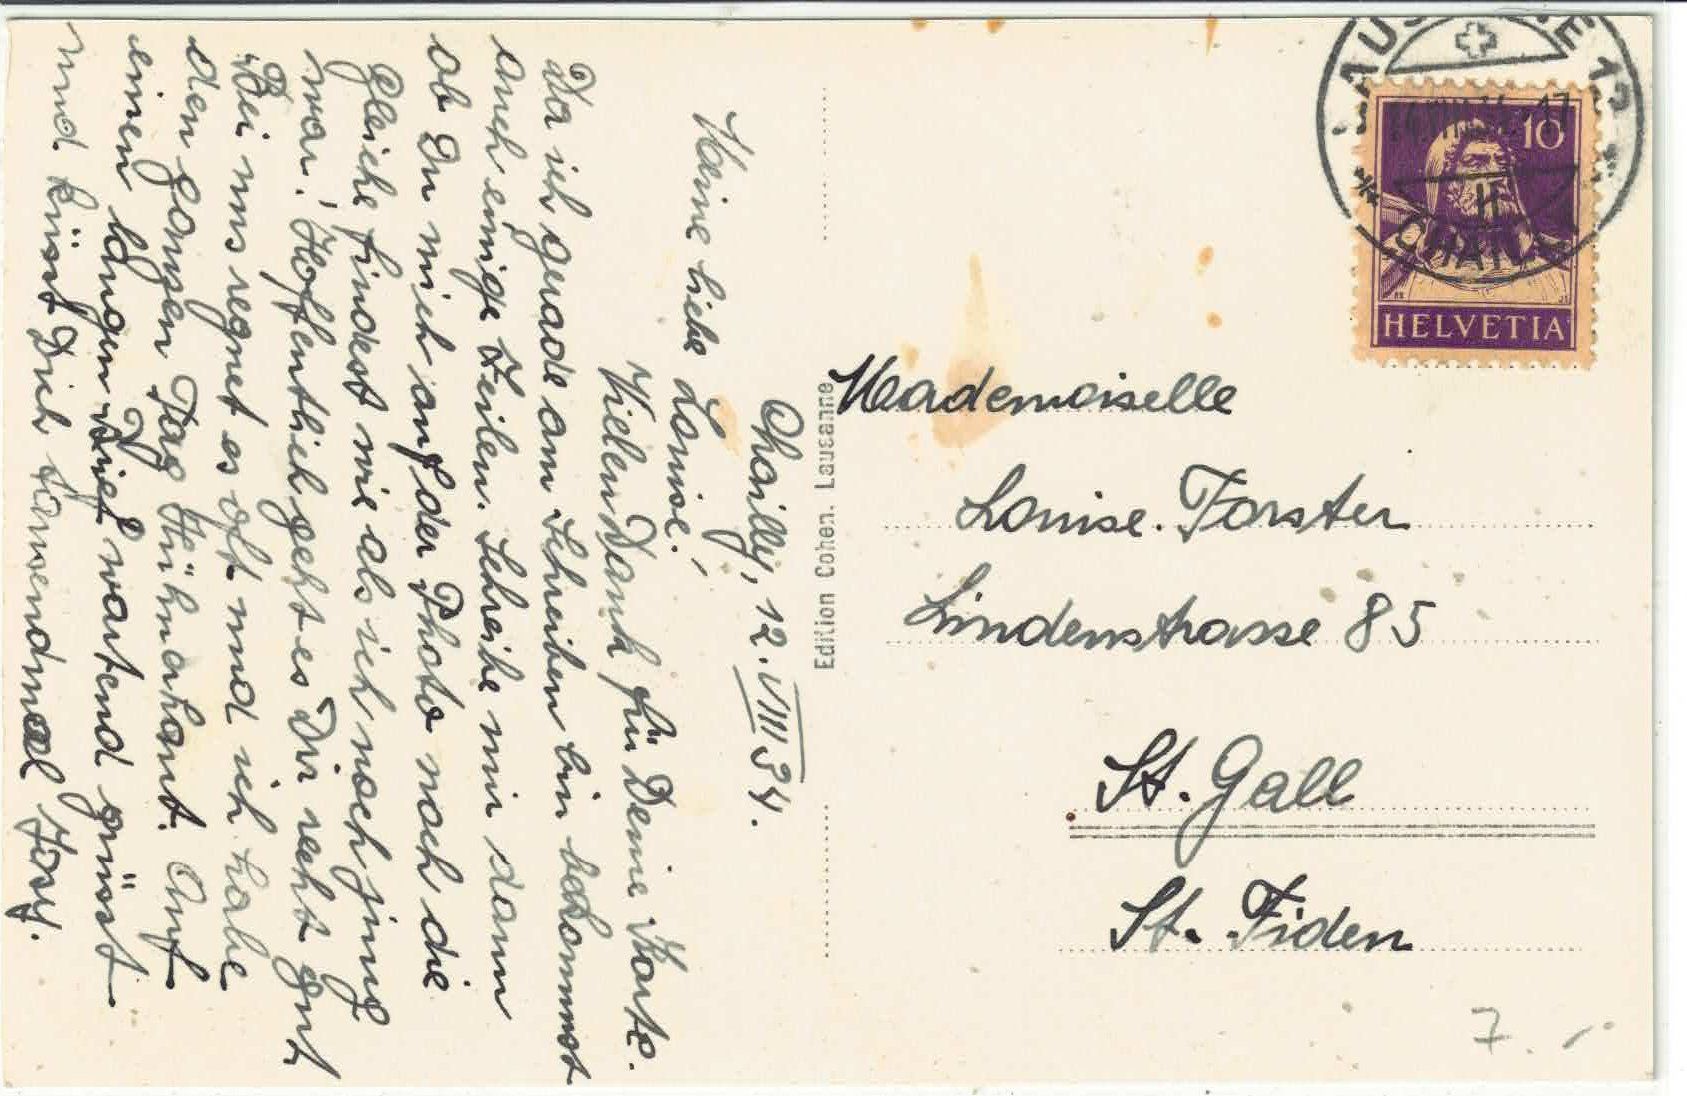 Chailly, 12. VIII 34.
Meine liebe Louise!
Vielen Dank für Deine Karte.
Da ich gerade am Schreiben bin bekommst
auch einige Zeilen. Schreibe mir dann
ob Du mich auf der Photo noch die
gleiche findest wie als ich noch jung
war! Hoffentlich geht es Dir recht gut
Bei uns regnet es oft und ich habe
den ganzen Tag Hühnerhaut. Auf
einen langen Brief wartend grüsst
und küsst Dich tausendmal Josy.
Edition Cohen. Lausanne
10
HELVETIA
LAUSANNE 12
CHAILLY
Mademoiselle
Louise. Forster
Lindenstrasse 85
St. Gall
St. Fiden
7. -